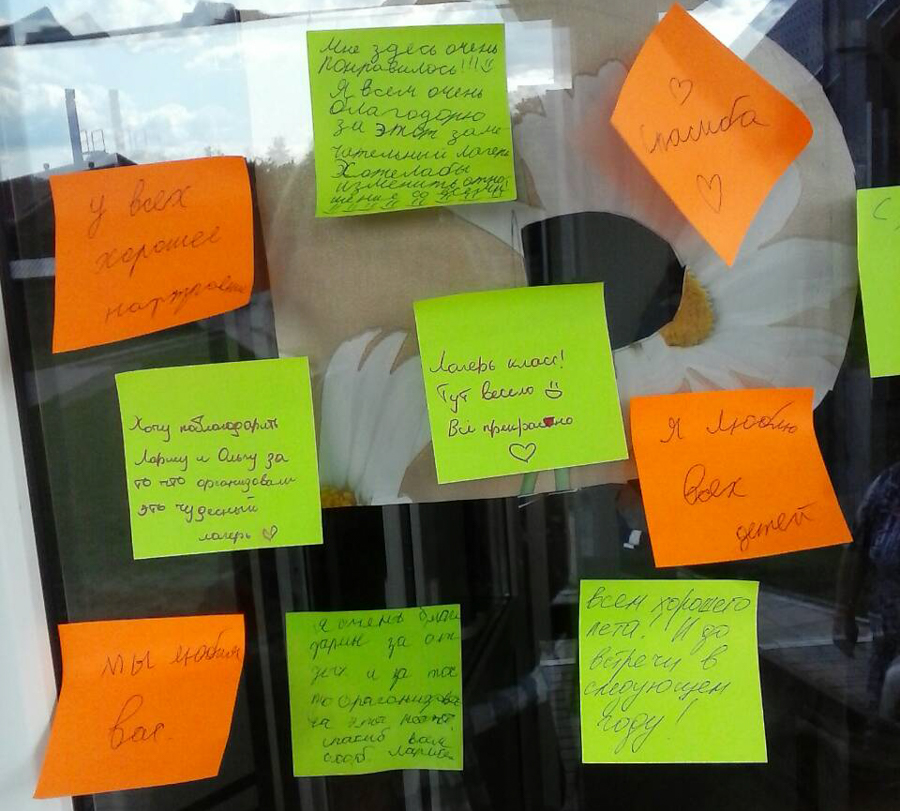 Мне здесь очень
понравилось!!!
Я всем очень
благодорю
за этот заме-
чательный лагерь
Хотелабы
изменить отно-
шение со всеми!
Спасиба
У всех
хорошее
настроение
С
Лагерь класс!
Тут весело
Всё прекрасно
Хочу поблагодарить
Ларису и Ольгу за
то что организовали
это чудесный
лагерь
Я люблю
всех
детей
мы любим
вас
я очень благо
дарна за от
дых и за то
за этот
спасиб всем
всем хорошего
лета! И до
встречи в
следующем
году!